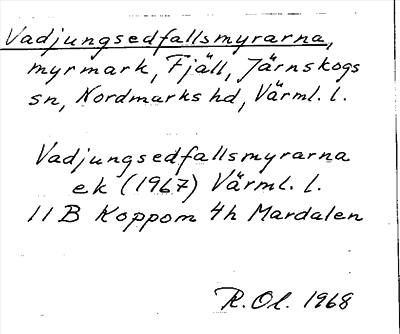 Vadjungsedfallsmyrarna,
myrmark, Fjäll, Järnskogs
sn, Nordmarks hd, Värml. l.
Vadjungsedfallsmyrarna
ek (1967) Värml. l.
11 B Koppom 4h Mardalen
R. Ol. 1968